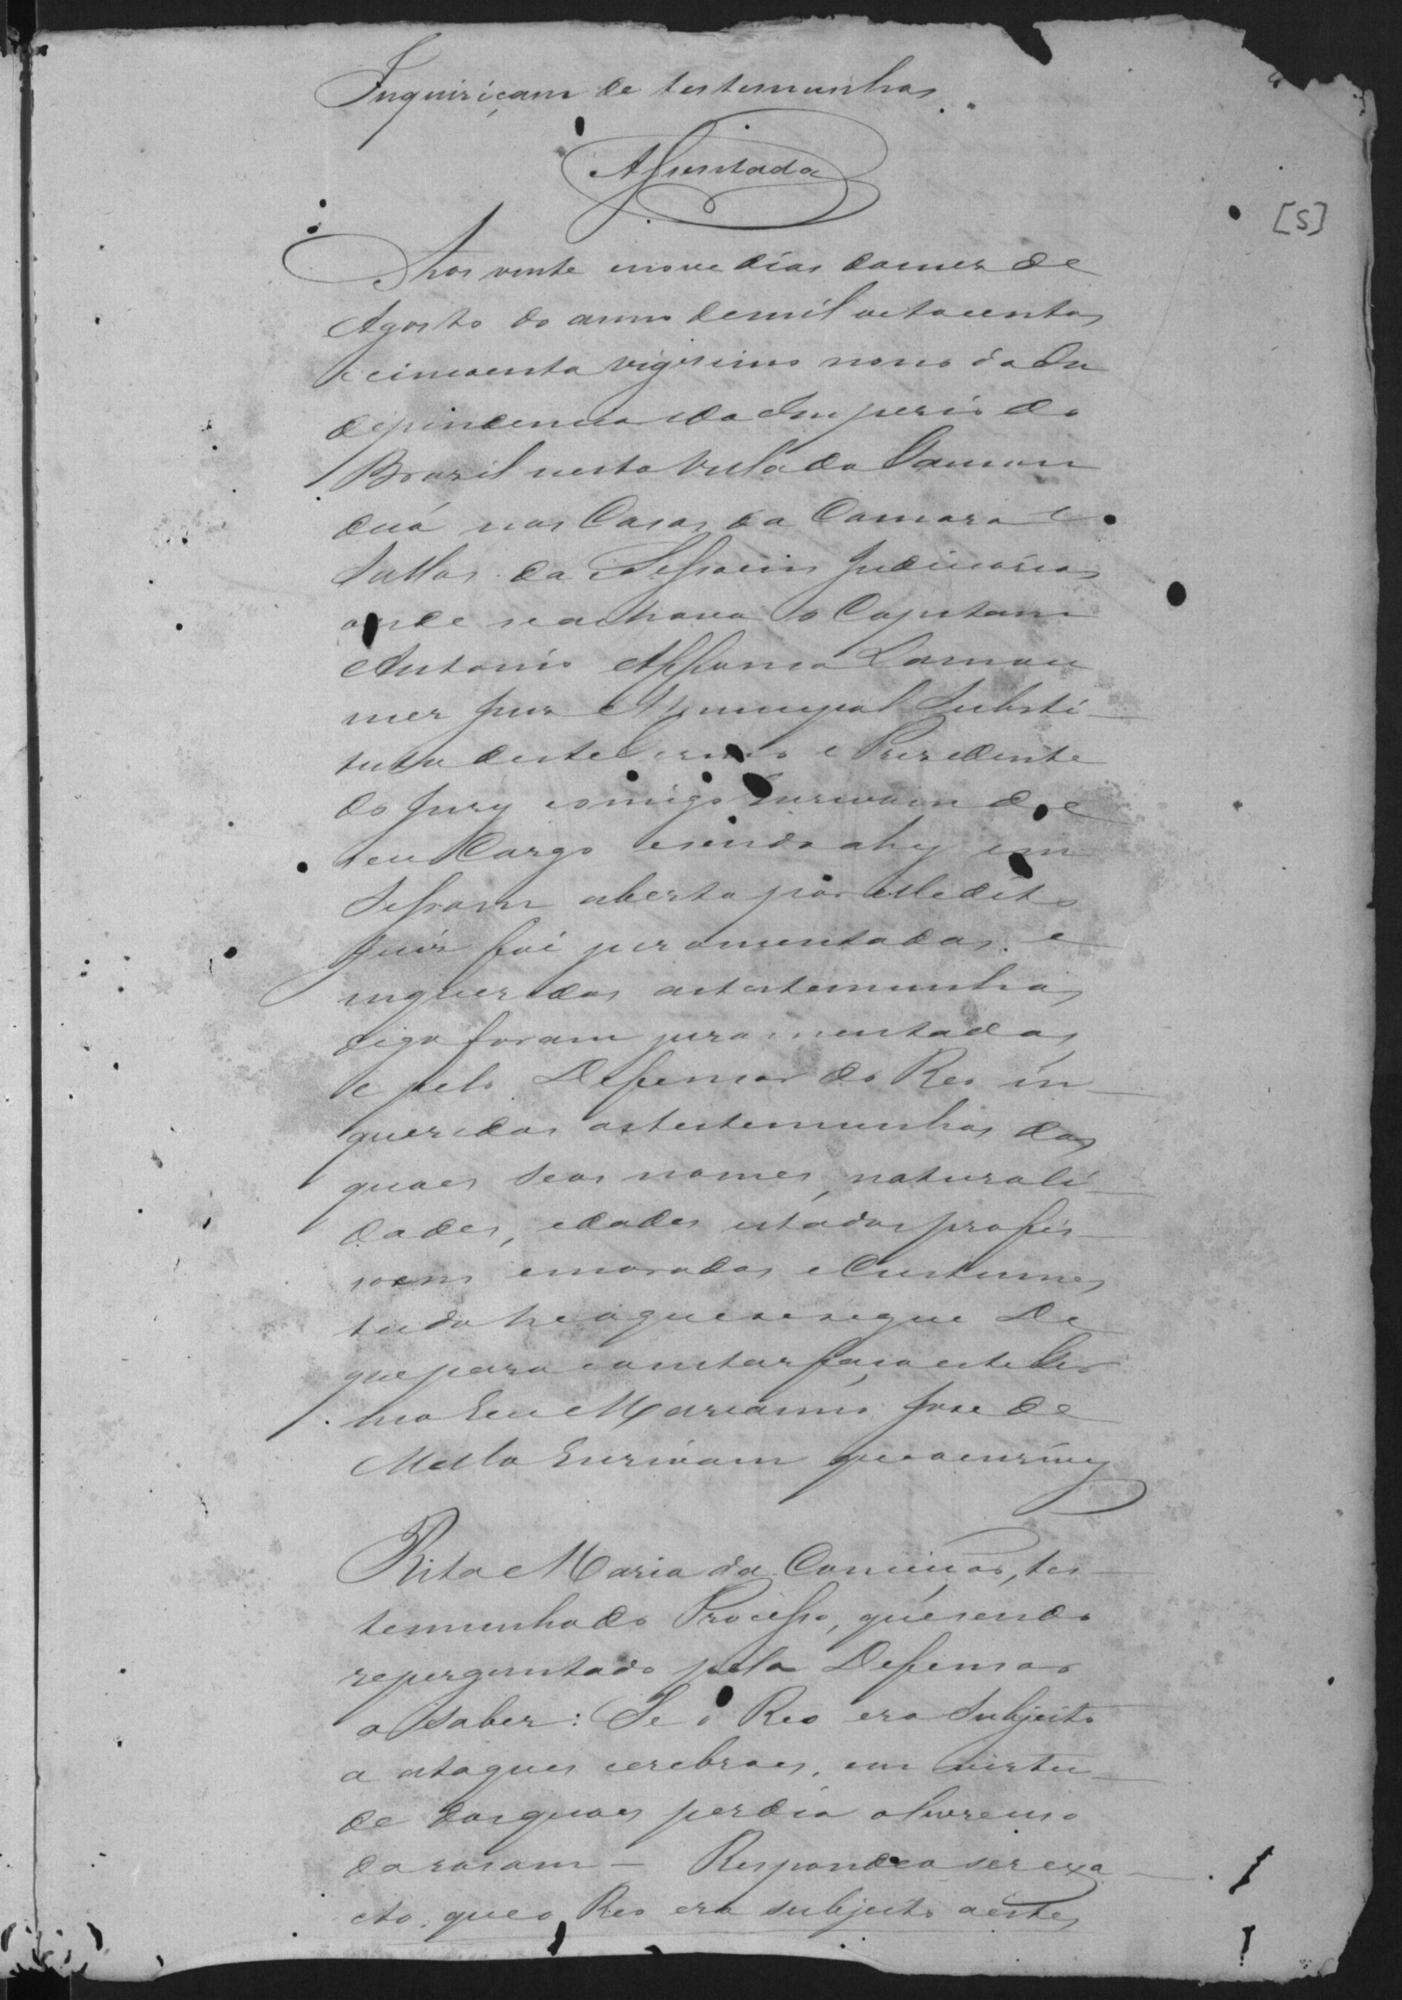 Inquiriçam de testemunhas
Assentada
[5]
Aos vinte enove dias domes de
Agosto do anno demil oitocentos
e cincoenta vigesimo nono da In
dependencia edo Imperio do
Brazil nesta Villa do Taman
duá nas Casas da Camara e
Sallas da Sessoens Judiciarias
onde seachava o Capitam
Antonio Affonso Lamou
nier Juiz Municipal Substi-
tuto deste Termo e Prezidente
do Jury comigo Escrivam de
seu Cargo esendo ahy em
Sessam aberta por elle dito
Juis foi juramentadas e
inqueridas astestemunhas
digo foram juramentadas
e pelo Defensor do Reo in-
queridas astestemunhas das
quaes seos nomes, naturali-
dades, edades estados profis-
soens emoradas eCustumes
tudo heoquesesegue De
quepara constar faço este Ter
mo Eu Marianno Jose de
Mello Escrivam queoescrevy
Rita Maria da Conceiçao, tes-
temunhado Processo, quesendo
reperguntado pelo Defensor
a saber: Se o Reo era Subjeito
a ataques cerebraes, em virtu-
de dosquaes perdia olivreuso
darasam — Respondeo ser exa-
cto, queo Reo era subjeito aestes